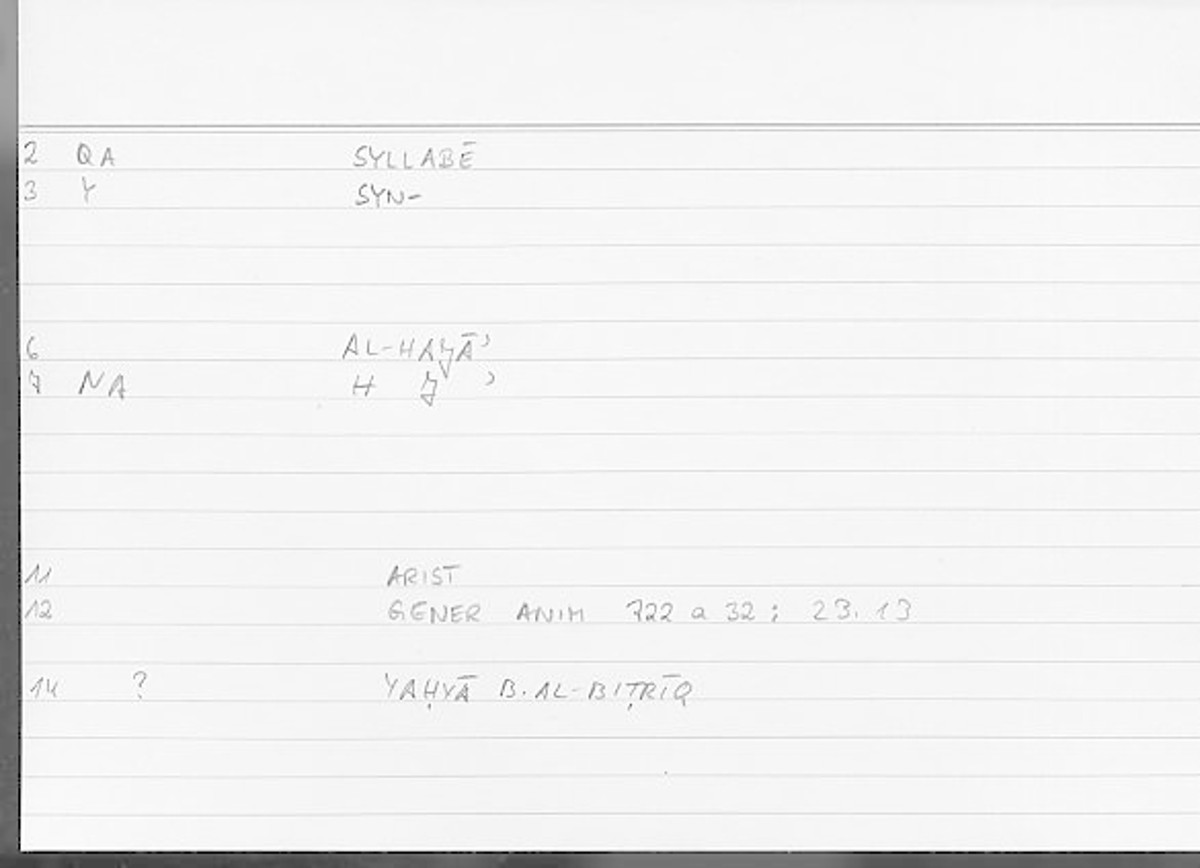 2 QA SYLLABĒ
3 Y SYN-
6 AL-HAǦĀʾ
7 NA H Ǧ ʾ
11 ARIST
12 GENER ANIM 722 a 32; 23.13
14 ? YAḤYĀ B. AL-BIṬRĪQ